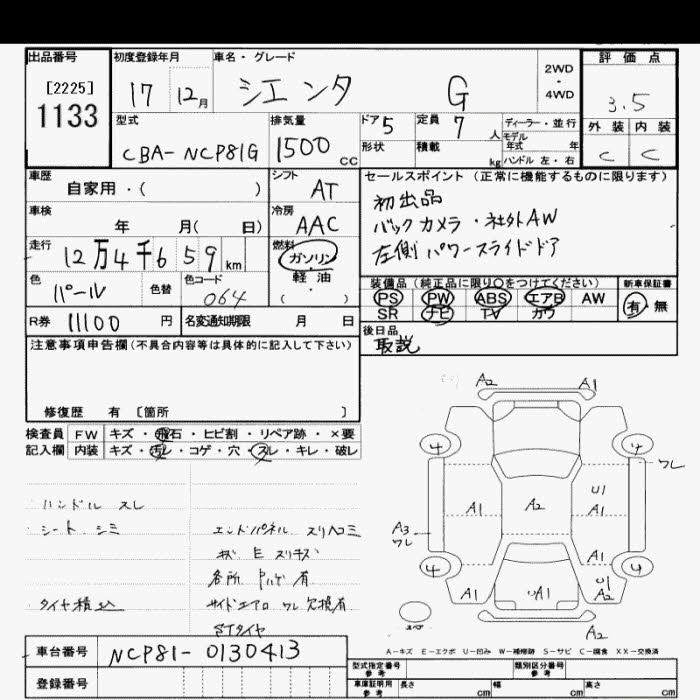 出品番号 初度登録年月 車名・グレード 2WD・4WD 評価点
[2225] 1133 17 12月 シエンタ G 3.5
型式 排気量 ドア 5 定員 7人 ディーラー・並行 外装 内装
CBA-NCP81G 1500cc 形状 積載 kg モデル年式 年 C C
ハンドル 左・右
車歴 シフト セールスポイント(正常に機能するものに限ります)
自家用・( ) AT 初出品
車検 冷房 バックカメラ・社外AW
年 月( 日) AAC 左側パワースライドドア
走行 燃料
12万4千659km ガソリン・軽油・( )
色 色替 色コード 装備品(純正品に限り○をつけてください) 新車保証書
パール 064 PS PW ABS エアB AW 有・無
SR ナビ TV カワ
R券 11100円 名変通知期限 月 日 後日品
取説
注意事項申告欄(不具合内容等は具体的に記入して下さい)
修復歴 有 [箇所 ]
検査員 FW キズ・飛石・ヒビ割・リペア跡・×要
記入欄 内装 キズ・汚レ・コゲ・穴・スレ・キレ・破レ
ハンドル スレ
シート シミ
タイヤ積込
エンドパネル スリヘコミ
キズ E スリキズ
各所 有
サイドエアロ ワレ欠損有
STタイヤ
A2 A1
4 4
ワレ
U1
A1 A2 A1
A3
ワレ
A1
4 4
A1 UA1 U1 A2
スペア
A2
A-キズ E-エクボ U-凹み W-補修跡 S-サビ C-腐食 XX-交換済
車台番号 NCP81-0130413
登録番号
型式指定番号 参考 類別区分番号 参考
車庫証明用 参考 長さ cm 幅 cm 高さ cm